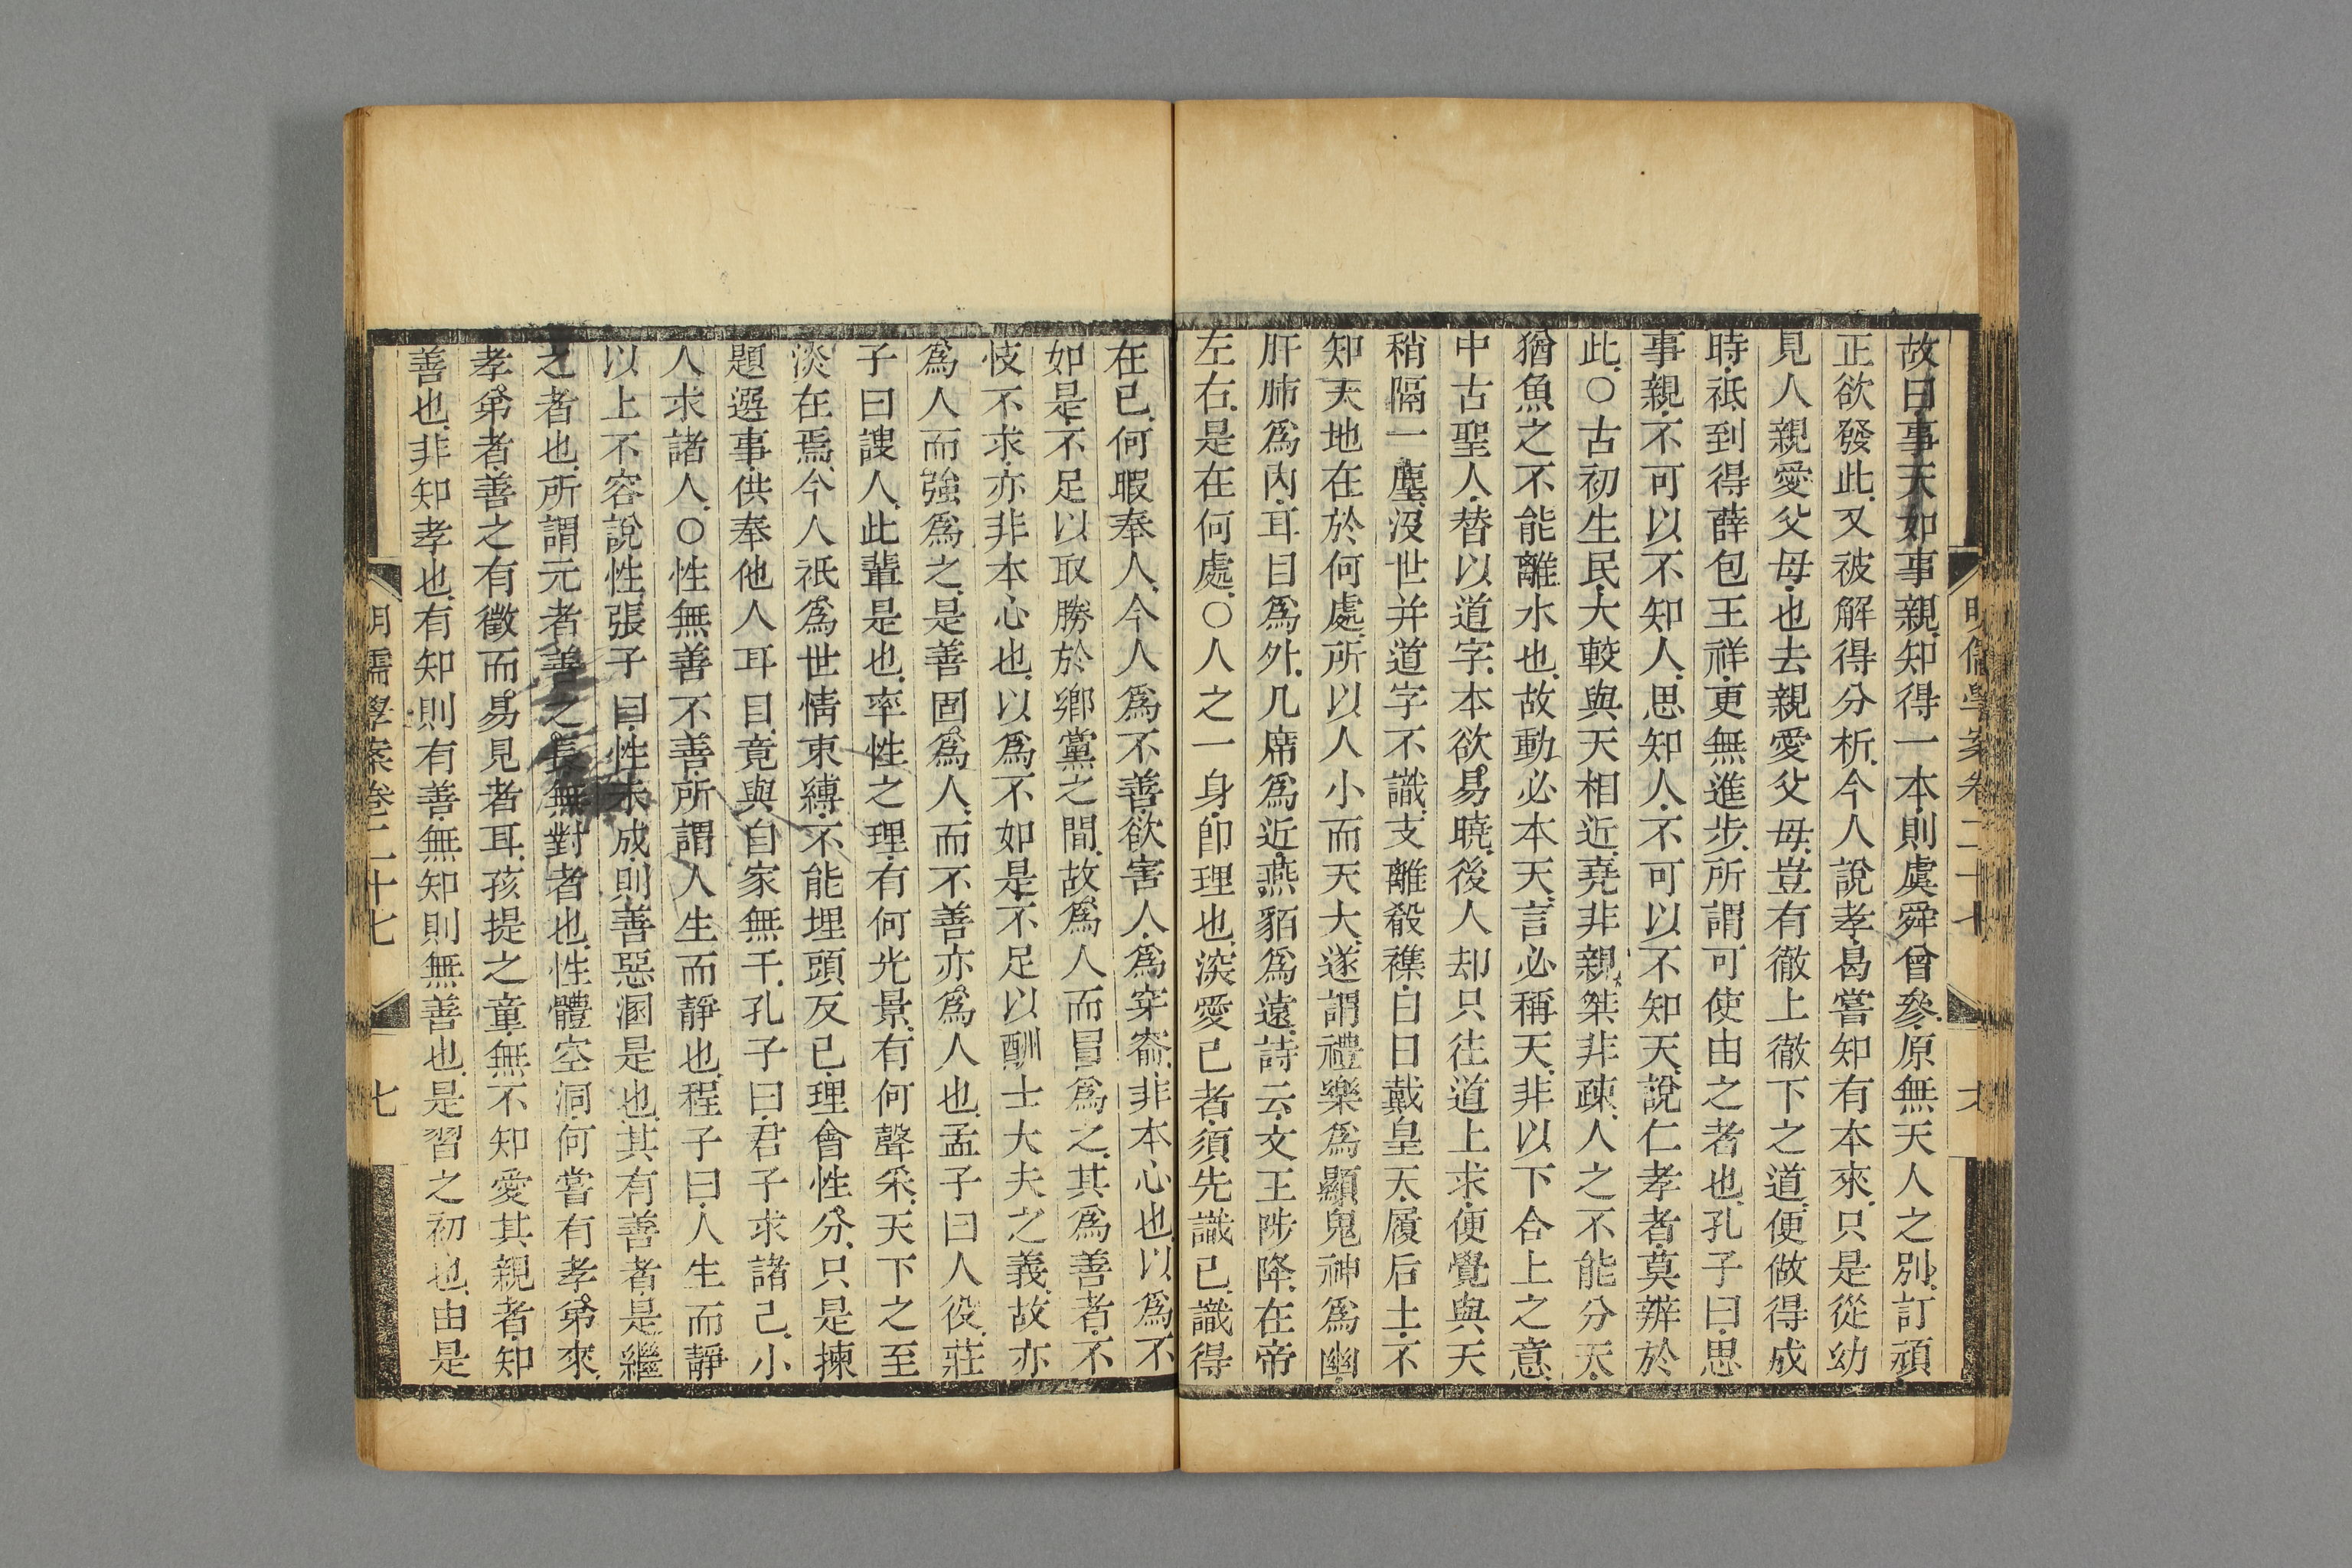 明儒學案卷二十七
故曰事天如事親知得一本則虞舜曾參原無天人之別訂頑
正欲發此又被解得分析今人說孝曷嘗知有本來只是從幼
見人親愛父母也去親愛父母豈有徹上徹下之道便做得成
時祗到得薛包王祥更無進步所謂可使由之者也孔子曰思
事親不可以不知人思知人不可以不知天說仁孝者莫辨於
此○古初生民大較與天相近堯非親桀非疎人之不能分天
猶魚之不能離水也故動必本天言必稱天非以下合上之意
中古聖人替以道字本欲易曉後人却只往道上求便覺與天
稍隔一塵沒世并道字不識支離殽襍日日戴皇天履后土不
知天地在於何處所以人小而天大遂謂禮樂爲顯鬼神爲幽
肝肺爲內耳目爲外几席爲近燕貊爲遠詩云文王陟降在帝
左右是在何處○人之一身卽理也深愛己者須先識己識得
在己何暇奉人今人爲不善欲害人爲穿窬非本心也以爲不
如是不足以取勝於鄉黨之間故爲人而冒爲之其爲善者不
忮不求亦非本心也以爲不如是不足以酬士大夫之義故亦
爲人而強爲之是善固爲人而不善亦爲人也孟子曰人役莊
子曰謏人此輩是也率性之理有何光景有何聲采天下之至
淡在焉今人祗爲世情束縛不能埋頭反已理會性分只是揀
題選事供奉他人耳目竟與自家無干孔子曰君子求諸己小
人求諸人○性無善不善所謂人生而靜也程子曰人生而靜
以上不容說性張子曰性未成則善惡溷是也其有善者是繼
之者也所謂元者善之長無對者也性體空洞何嘗有孝弟來
孝弟者善之有徵而易見者耳孩提之童無不知愛其親者知
善也非知孝也有知則有善無知則無善也是習之初也由是
明儒學案卷二十七
七